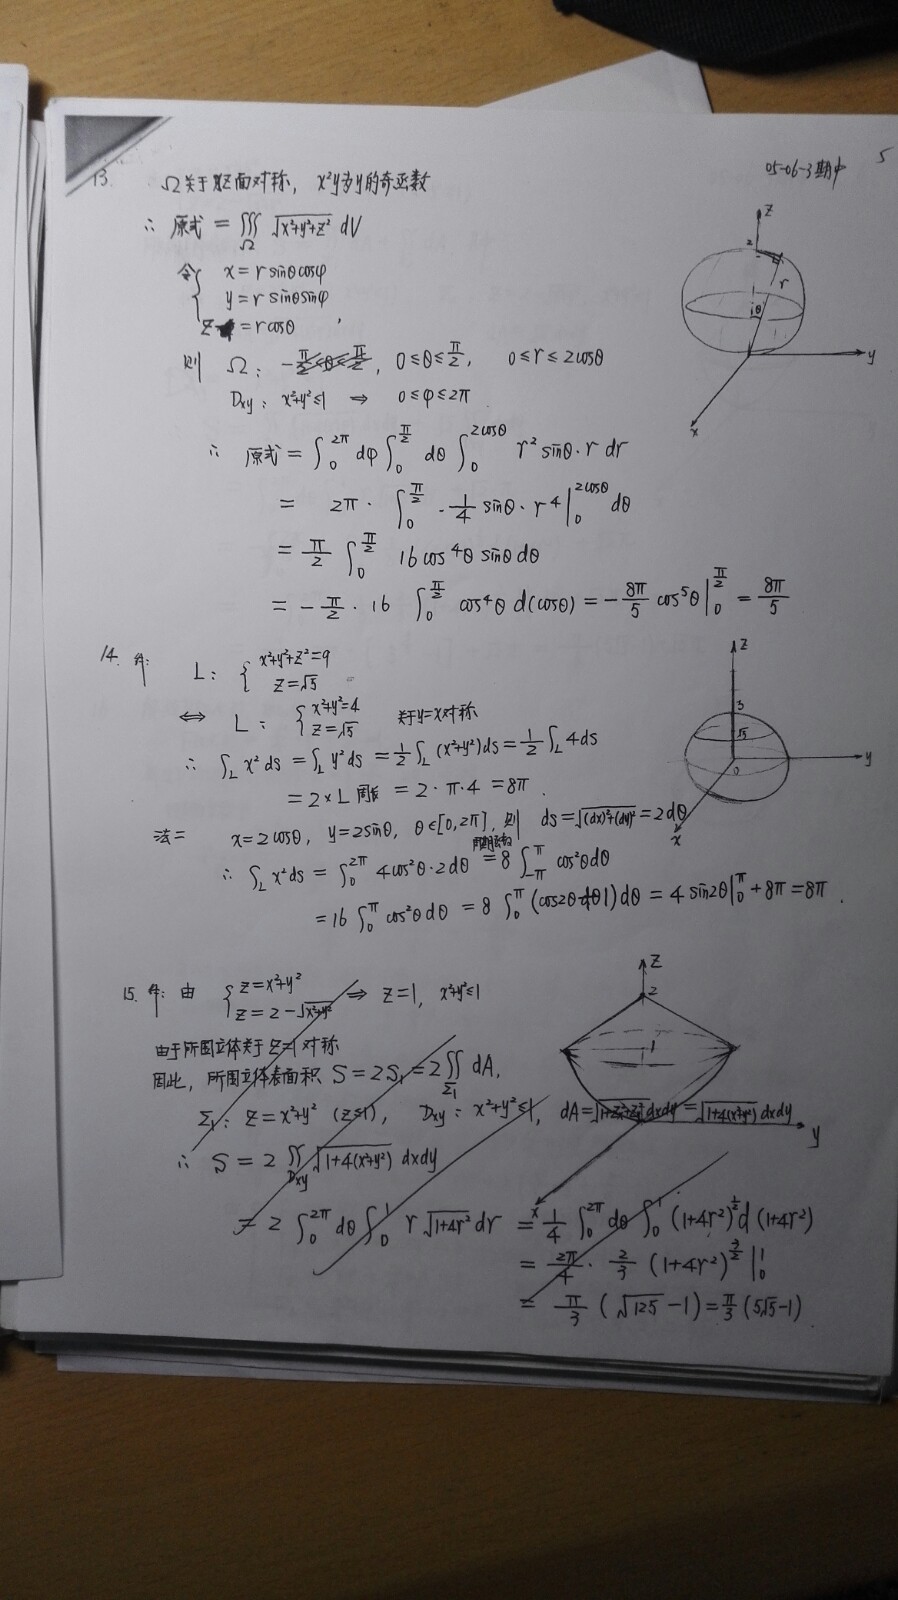 05-06-3期中 5
13. Ω关于xz面对称, x²y为y的奇函数
∴ 原式 = ∭_Ω √(x²+y²+z²) dV
令 { x = r sinθcosφ
y = r sinθsinφ
z = rcosθ
则 Ω: -π/2≤θ≤π/2, 0≤θ≤π/2, 0≤r≤2cosθ
Dxy: x²+y²≤1 ⇒ 0≤φ≤2π
∴ 原式 = ∫₀^{2π} dφ ∫₀^{π/2} dθ ∫₀^{2cosθ} r² sinθ·r dr
= 2π· ∫₀^{π/2} ·1/4 sinθ·r⁴|₀^{2cosθ} dθ
= π/2 ∫₀^{π/2} 16 cos⁴θ sinθ dθ
= -π/2·16 ∫₀^{π/2} cos⁴θ d(cosθ) = -8π/5 cos⁵θ|₀^{π/2} = 8π/5
z
2
r
θ
y
x
14. 解: L: { x²+y²+z²=9
z=√5
⇔ L: { x²+y²=4
z=√5 关于y=x对称
∴ ∫_L x²ds = ∫_L y²ds = 1/2 ∫_L (x²+y²)ds = 1/2 ∫_L 4ds
= 2×L周长 = 2·π·4 = 8π.
法二 x=2cosθ, y=2sinθ, θ∈[0,2π], 则 ds=√((dx)²+(dy)²)=2dθ
周期函数
∴ ∫_L x²ds = ∫₀^{2π} 4cos²θ·2dθ = 8 ∫_{-π}^{π} cos²θdθ
= 16 ∫₀^π cos²θdθ = 8 ∫₀^π (cos2θ+1)dθ = 4 sin2θ|₀^π + 8π = 8π.
z
3
√5
0
y
x
15. 解: 由 { z=x²+y²
z=2-√(x²+y²) ⇒ z=1, x²+y²≤1
由于所围立体关于z=1对称
因此, 所围立体表面积 S=2S₁=2∬_{Σ₁} dA,
Σ₁: z=x²+y² (z≤1), Dxy: x²+y²≤1, dA=√(1+z²ₓ+z²ᵧ)dxdy=√(1+4(x²+y²))dxdy
∴ S = 2 ∬_{Dxy} √(1+4(x²+y²)) dxdy
= 2 ∫₀^{2π} dθ ∫₀^1 r√(1+4r²)dr = 1/4 ∫₀^{2π} dθ ∫₀^1 (1+4r²)^{1/2} d(1+4r²)
= 2π/4 · 2/3 (1+4r²)^{3/2}|₀^1
= π/3 (√125-1) = π/3 (5√5-1)
z
2
1
y
x